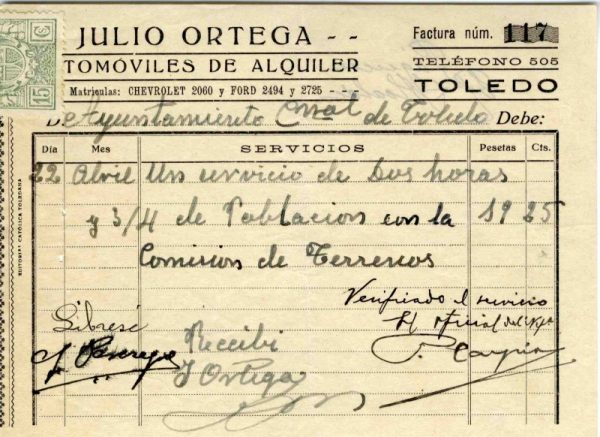 15 C
JULIO ORTEGA - -
TOMÓVILES DE ALQUILER
Matriculas: CHEVROLET 2060 y FORD 2494 y 2725 - - -
Factura núm. 117
TELÉFONO 505
TOLEDO
Ayuntamiento Cnal de Toledo Debe:
Día Mes SERVICIOS Pesetas Cts.
22 Abril Un servicio de Dos horas
y 3/4 de Poblacion con la 19 25
Comision de Terrenos
Verificado el servicio
El oficial del
Librese
Recibi
J Ortega
EDITORIAL CATÓLICA TOLEDANA